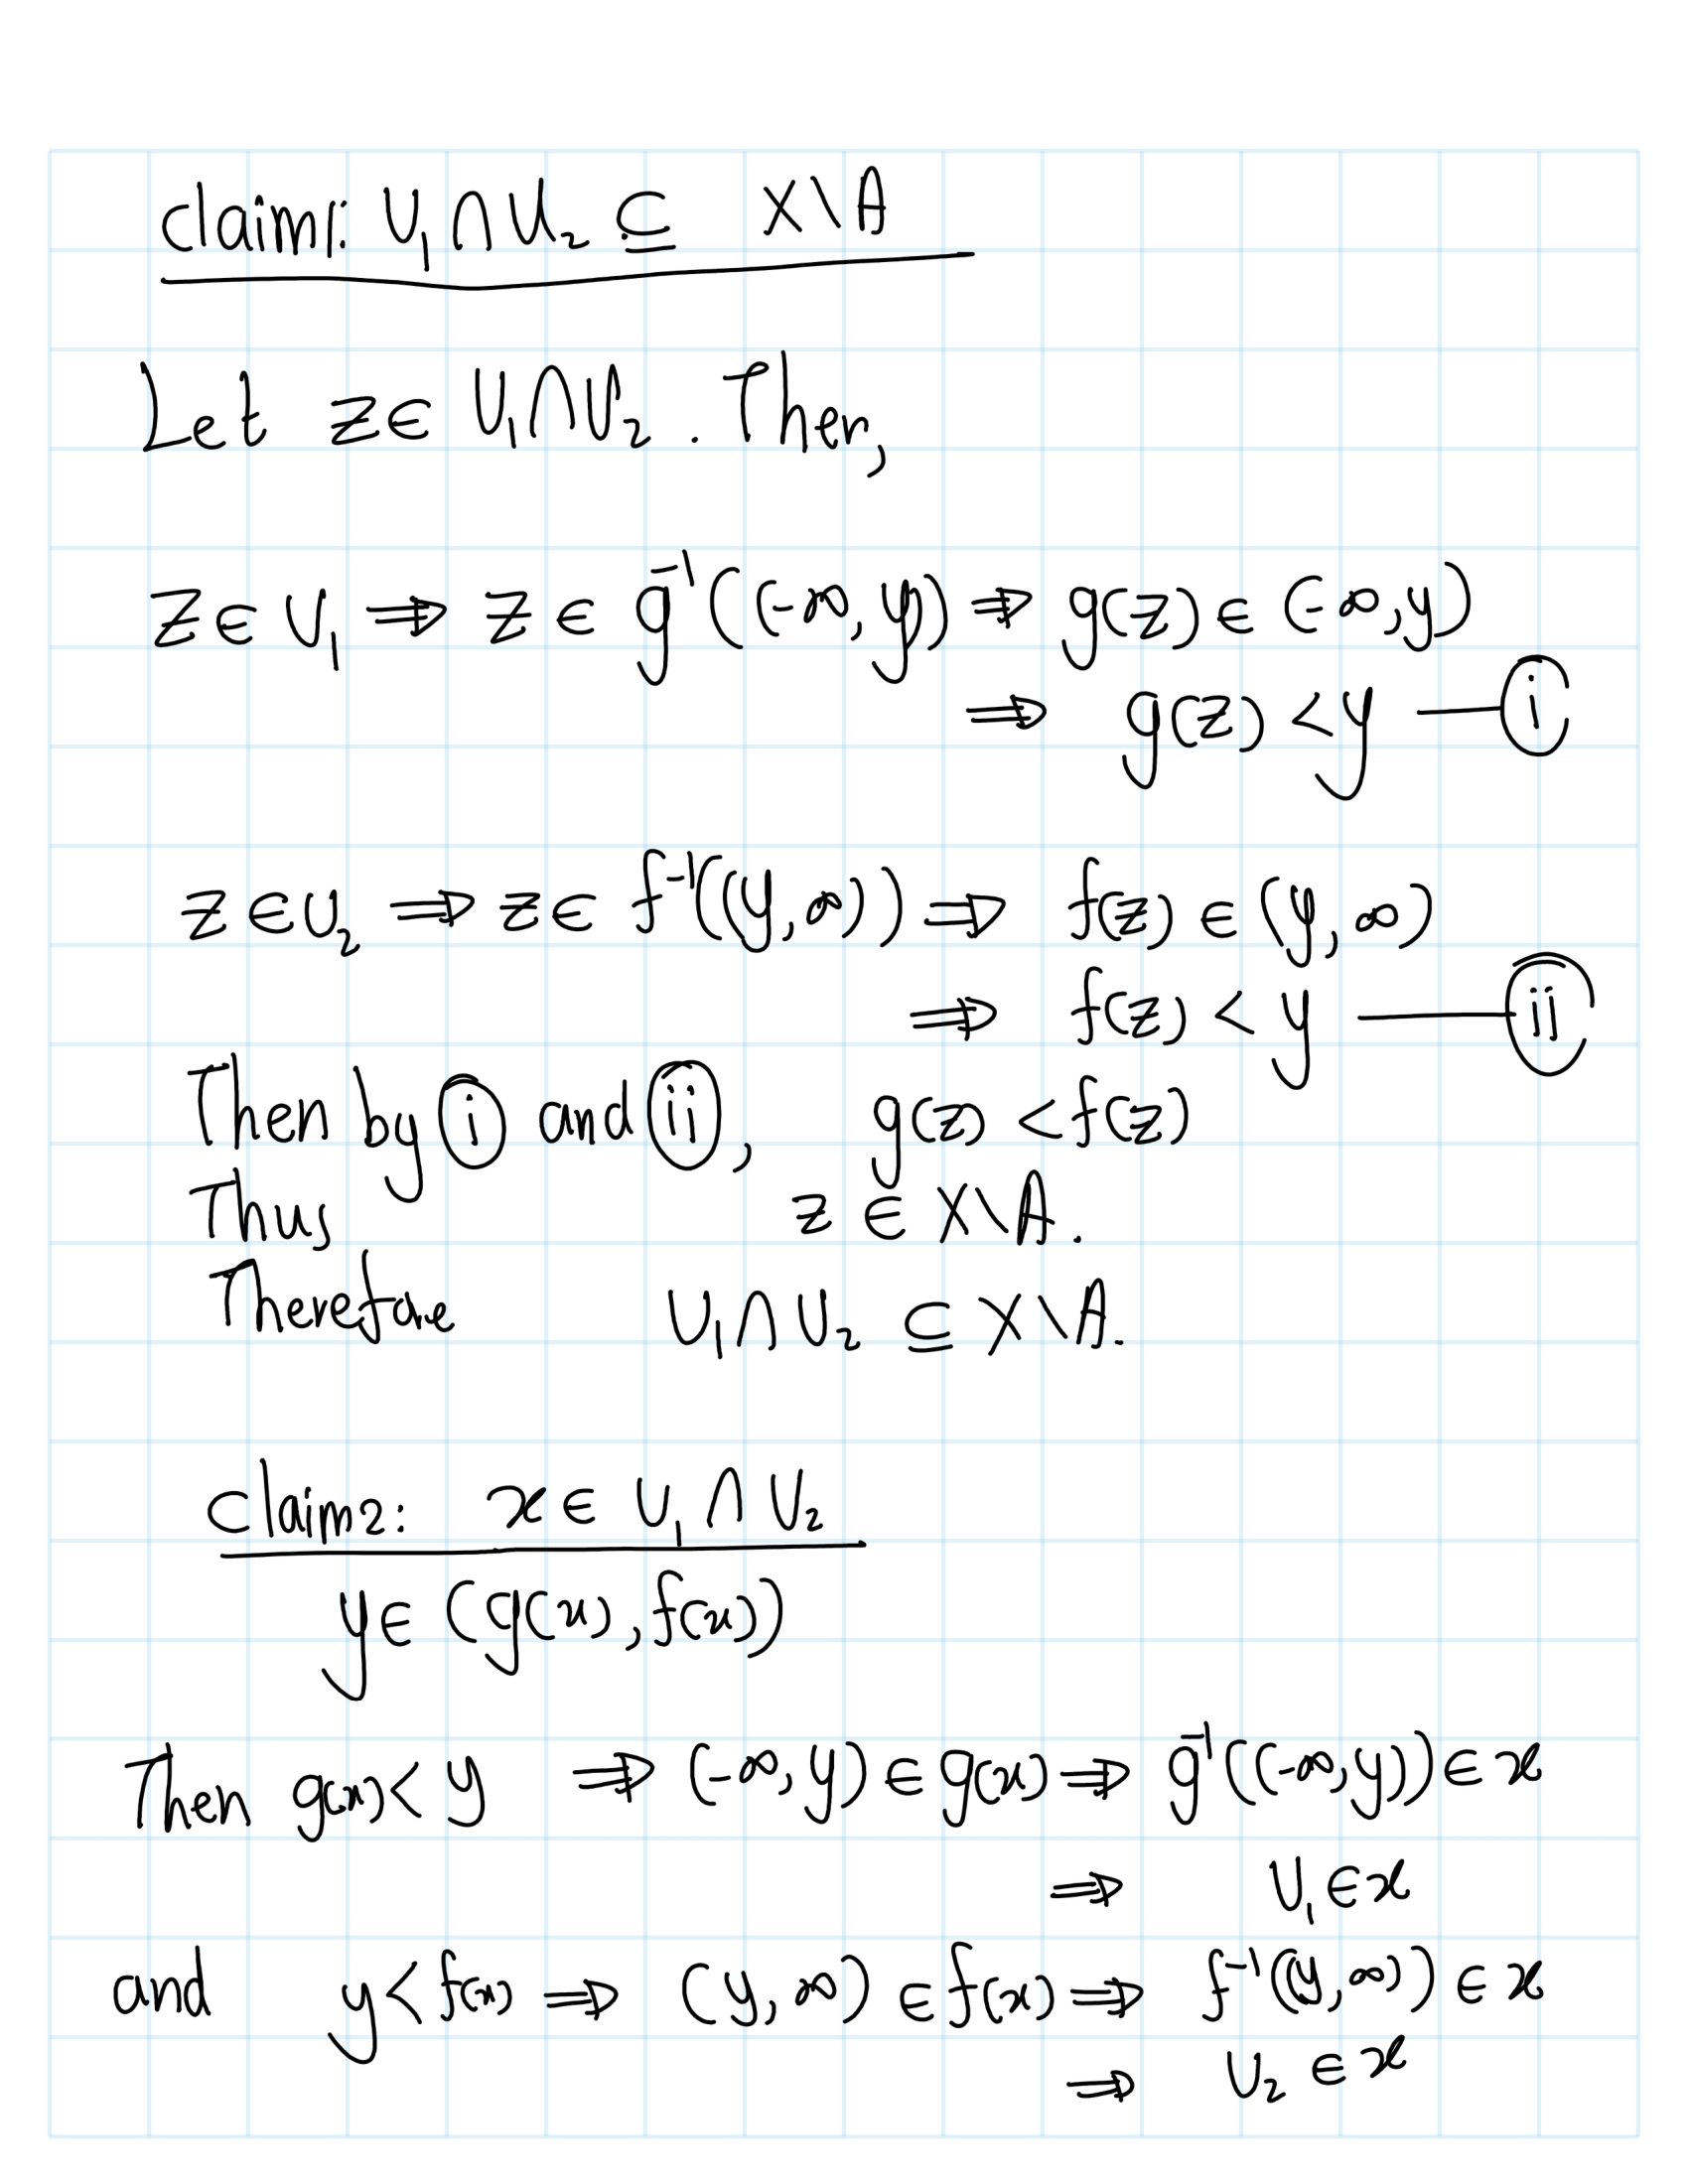 Claim: U₁∩U₂ ⊆ X\A
Let z∈ U₁∩U₂. Then,
z∈U₁ ⇒ z ∈ g⁻¹((-∞,y)) ⇒ g(z) ∈ (-∞,y)
⇒ g(z) < y — (i)
z∈U₂ ⇒ z∈ f⁻¹((y,∞)) ⇒ f(z) ∈ (y,∞)
⇒ f(z) < y — (ii)
Then by (i) and (ii), g(z) < f(z)
Thus z ∈ X\A.
Therefore U₁∩U₂ ⊆ X\A.
Claim2: x∈ U₁∩U₂
y∈ (g(x), f(x))
Then g(x) < y ⇒ (-∞,y) ∈ g(x) ⇒ g⁻¹((-∞,y)) ∈ x
⇒ U₁ ∈ x
and y < f(x) ⇒ (y,∞) ∈ f(x) ⇒ f⁻¹((y,∞)) ∈ x
⇒ U₂ ∈ x